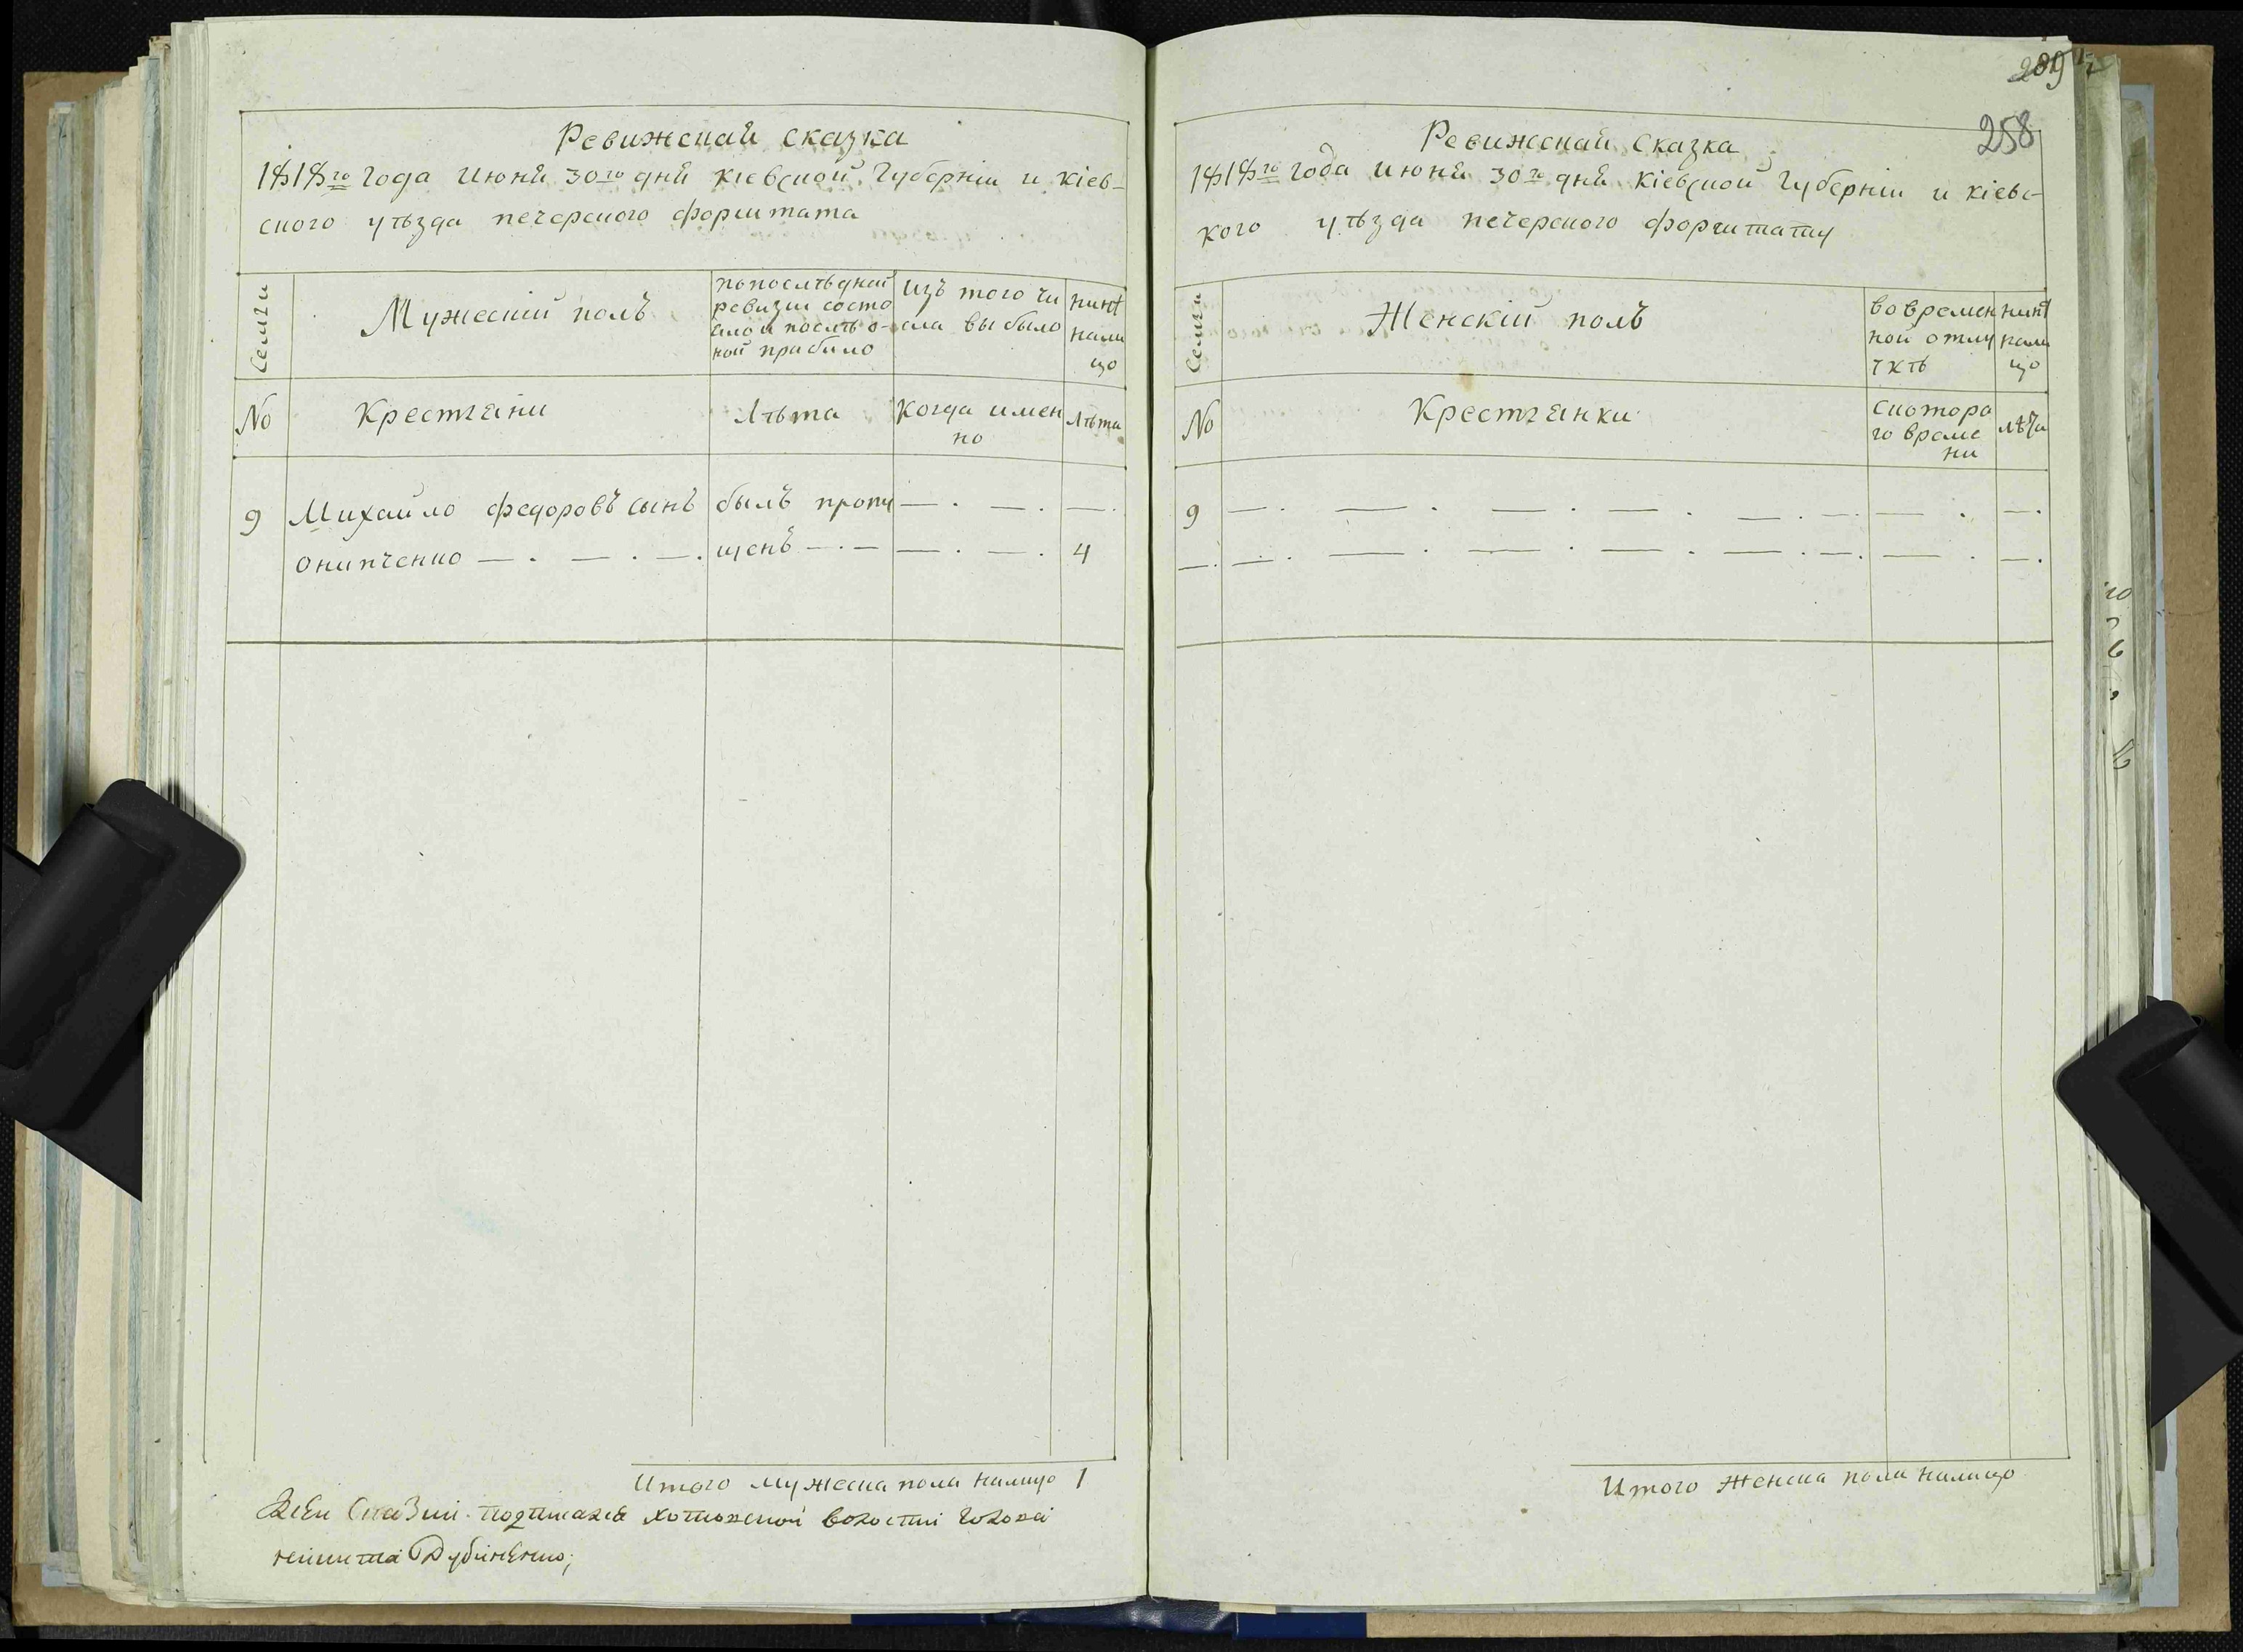 Ревижская сказка
1818го года июня 30го дня киевской губернии и Кіев-
ского уѣзда печерского форштата
Семьи
Мужескій полъ
по послѣдней
ревизіи состо
яло и послѣ о-
ной прибыло
Изъ того чи
сла выбыло
нинѣ
нали
цо
No
Крестьяни
Лѣта
Когда имен
но
Лѣта
9
Михайло федоровъ сынъ
былъ пропу
Онипченко
щенъ
4
Итого мужеска пола налицо 1
подписалъ хотовской волости голова
258
Ревижская Сказка
1818го года июня 30го дня Кіевской Губерніи и кіевс-
кого уѣзда печерского форштату
Семьи
Женскій полъ
во времен
ной отлу
чкѣ
нинѣ
нали
цо
No
Крестьянки
Скотора
го време
ни
лѣта
9
Итого Женска пола налицо